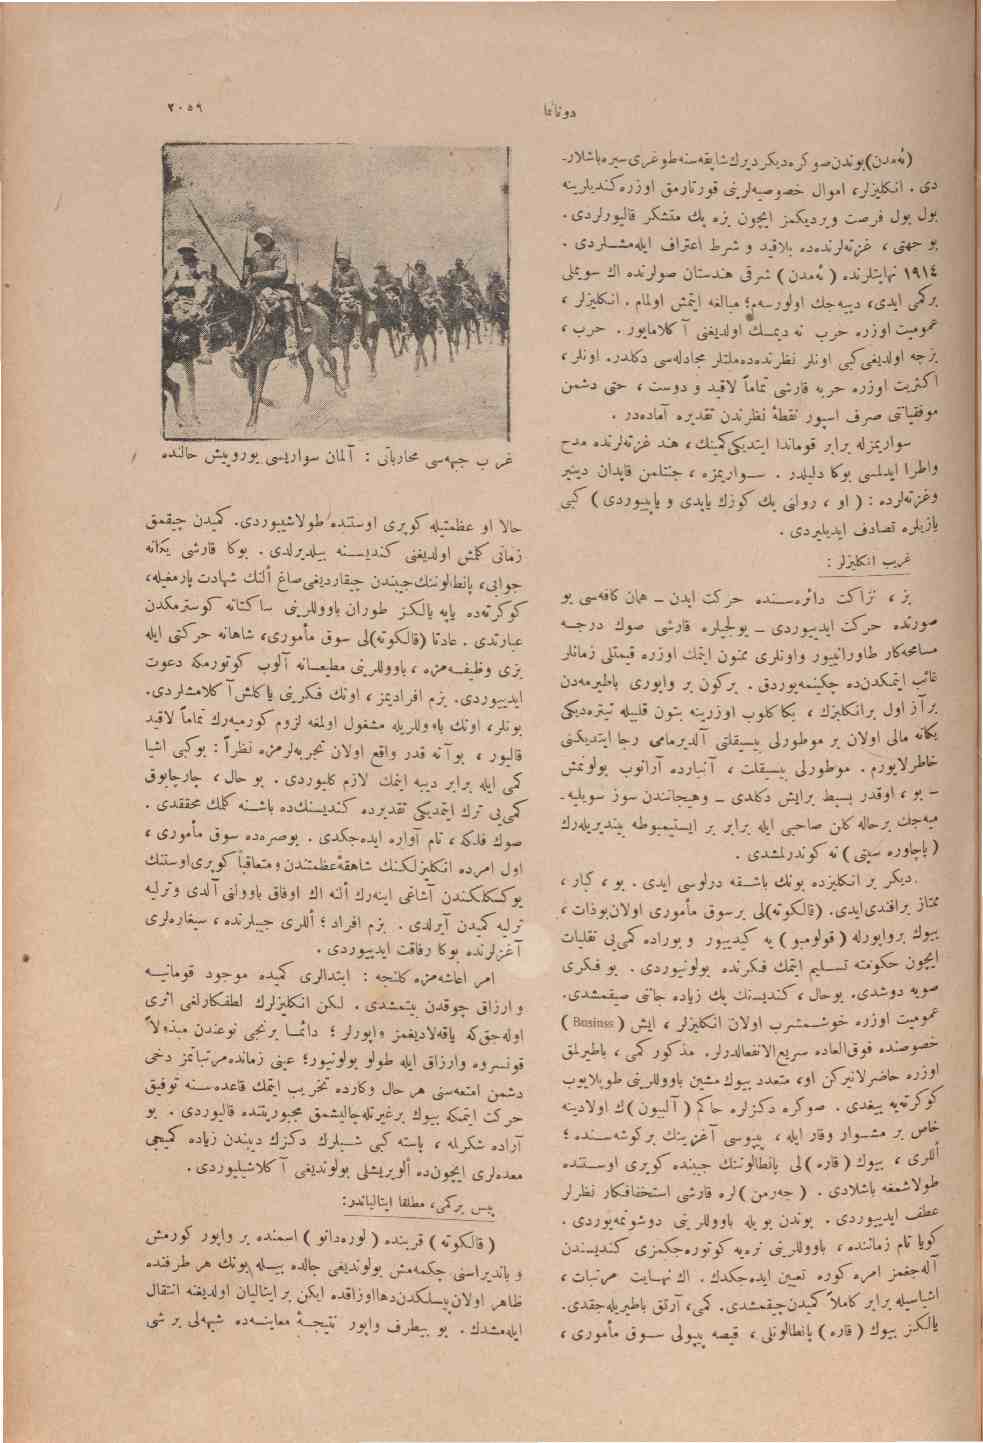 دوناتما
٢٠٥٩
(ئه‌مدن) بوندن صوكره ديكر ديرك شايقه‌سنه طوغرى سيره باشلار-
دى . انكليزلر، اموال خصوصيه‌لرينى قورتارمق اوزره كنديلرينه
بول بول فرصت ويرديكمز ايچون بزه پك متشكر قاليورلردى .
بو جهتى ، غزته‌لرنده‌ده بلاقيد و شرط اعتراف ايله‌مشلردى .
١٩١٤ نهايتلرنده ( ئه‌مدن ) شرقى هندستان صولرنده اك سويملى
بركمى ايدى، دييه‌جك اولورسه‌م؛ مبالغه ايتمش اولمام . انكليزلر ،
عموميت اوزره حرب نه ديمك اولديغنى آكلامايور . حرب ،
بزجه اولديغى كبى اونلر نظرنده‌ده ملتلر مجادله‌سى دكلدر. اونلر ،
اكثريت اوزره حربه قارشى تماماً لاقيد و دوست ، حتى دشمن
موفقياتنى صرف اسپور نقطهٔ نظرندن تقديره آماده‌در .
سواريمزله برابر قوماندا ايتديكى كمينك، هند غزته‌لرنده مدح
واطرا ايدلمسى بوكا دليلدر . سواريمزه ، جنتلمن قاپدان دينير
وغزته‌لرده : ( او ، رولنى پك كوزل ياپدى و ياپييوردى ) كبى
يازيلره تصادف ايديليردى .
غريب انكليزلر :
بز ، نزاكت دائره‌سنده حركت ايدن - همان كافه‌سى بو
صورتده حركت ايدييوردى - يولجيلره قارشى صوك درجه
مسامحه‌كار طاورانييور واونلرى ممنون ايتمك اوزره قيمتلى زمانلر
غائب ايتمكدن‌ده چكينمه‌يوردق . بركون بر واپورى باطيرمه‌دن
برآز اول برانكليزك ، بكا كلوب اوزرينه بتون قلبيله تيتره‌ديكى
يكانه مالى اولان بر موطورلى بيسيقلتى آلديرمامى رجا ايتديكنى
خاطرلايورم . موطورلى بيسيقلت ، آنبارده آرانوب بولونمش
- بو ، اوقدر بسيط برايش دكلدى - وهيجانندن سوز سويليه-
ميه‌جك برحاله كلن صاحبى ايله برابر بر ايستيمبوطه بينديريله‌رك
( پاچاوره سيتى ) نه كوندرلمشدى .
ديكر بر انكليزده بونك باشقه درلوسى ايدى . بو ، كبار ،
ممتاز برافندى ايدى. (قالكوته)لى برسوق مأمورى اولان بوذات ،
بيوك برواپورله ( قولومبو ) يه كيدييور و بوراده كمى‌يى نقليات
ايچون حكومته تسليم ايتمك فكرنده بولونيوردى . بو فكرى
صويه دوشدى. بوحال ، كنديسنك پك زياده جاننى صيقمشدى.
عموميت اوزره خوشمشرب اولان انكليزلر ، ايش ( Businss )
خصوصنده فوق‌العاده سريع‌الانفعالدرلر. مذكور كمى ، باطيرلمق
اوزره حاضرلانيركن او، متعدد بيوك مشين باووللرينى طوپلايوب
كوكرته‌يه ييغدى . صوكره دكزلره حاكم ( آلبيون )ك اولادينه
خاص بر مشوار وقار ايله ، پيپوسى آغزينك بركوشه‌سنده ؛
اللرى ، بيوك ( قاره )لى پانطالوننك جيبنده كوپرى اوستنده
طولاشمغه باشلادى . ( جه‌رمن )لره قارشى استخفافكار نظرلر
عطف ايدييوردى . بوندن بويله باووللرينى دوشونمه‌يوردى .
كويا تام زماننده ، باووللرينى نره‌يه كوتوره‌جكمزى كنديسندن
آله‌جغمز امره كوره تعيين ايده‌جكدك. اك نهايت مرتبات ،
اشياسيله برابر كاملاً كميدن چيقمشدى. كمى، آرتق باطيريله‌جقدى.
يالكز بيوك ( قاره ) پانطالونلى ، قيصه پيپولى سوق مأمورى ،
غرب جبهه‌سى محارباتى : آلمان سواريسى يورويش حالنده
حالا او عظمتيله كوپرى اوستنده طولاشييوردى. كميدن چيقمق
زمانى كلمش اولديغنى كنديسنه بيلديرلدى . بوكا قارشى يكانه
جوابى، پانطالوننك جيبندن چيقارديغى صاغ ألنك شهادت پارمغيله،
كوكرته‌ده ياپه يالكز طوران باووللرينى ساكتانه كوسترمكدن
عبارتدى . عادتا (قالكوته)لى سوق مأمورى، شاهانه حركتى ايله
بزى وظيفه‌مزه ، باووللرينى مطيعانه آلوب كوتورمكه دعوت
ايدييوردى. بزم افراديمز ، اونك فكرينى ياكلش آكلامشلردى.
بونلر، اونك باووللريله مشغول اولمغه لزوم كورميه‌رك تماماً لاقيد
قاليور ، بوآنه قدر واقع اولان تجربه‌لرمزه نظراً : بوكبى اشيا
كمى ايله برابر ديبه ايتمك لازم كليوردى . بو حال ، چارچابوق
كمى‌يى ترك ايتمديكى تقديرده كنديسنك‌ده باشنه كلمك محققدى .
صوك فلكه ، تام آواره ايده‌جكدى . بوصره‌ده سوق مأمورى ،
اول امرده انكليزلكنك شاهقهٔ عظمتندن ومتعاقباً كوپرى اوستنك
يوكسكلكندن آشاغى اينه‌رك ألنه اك اوفاق باوولنى آلدى وترليه
ترليه كميدن آيرلدى . بزم افراد ؛ أللرى جيبلرنده ، سيغاره‌لرى
آغزلرنده بوكا رفاقت ايدييوردى .
امر اعاشه‌مزه كلنجه : ابتدالرى كميده موجود قومانيه
و ارزاق چوقدن بيتمشدى . لكن انكليزلرك لطفكارلغى اثرى
اوله‌جق‌كه ياقه‌لاديغمز واپورلر ؛ دائما برنجى نوعندن مبذولاً
قونسروه وارزاق ايله طولو بولونيور؛ عينى زمانده مرتباتمز دخى
دشمن امتعه‌سنى هر حال وكارده تخريب ايتمك قاعده‌سنه توفيق
حركت ايتمكه بيوك برغيرتله چاليشمق مجبوريتنده قاليوردى . بو
آراده شكرلمه ، پاسته كبى شيلرك دكزك ديبندن زياده كميجى
معده‌لرى ايچون‌ده ألويريشلى بولونديغى آكلاشيليوردى .
پيس بركمى، مطلقا ايتاليانده‌ر:
( قالكوته ) قربنده ( لوره‌دانو ) اسمنده بر واپور كورمش
و بانديراسنى چكمه‌مش بولونديغى حالده بيله بونك هر طرفنده
ظاهر اولان پيسلكدن دها اوزاقده ايكن بر ايتاليان اولديغنه انتقال
ايله‌مشدك. بو بيطرف واپور نتيجهٔ معاينه‌ده شبهه‌لى بر شى